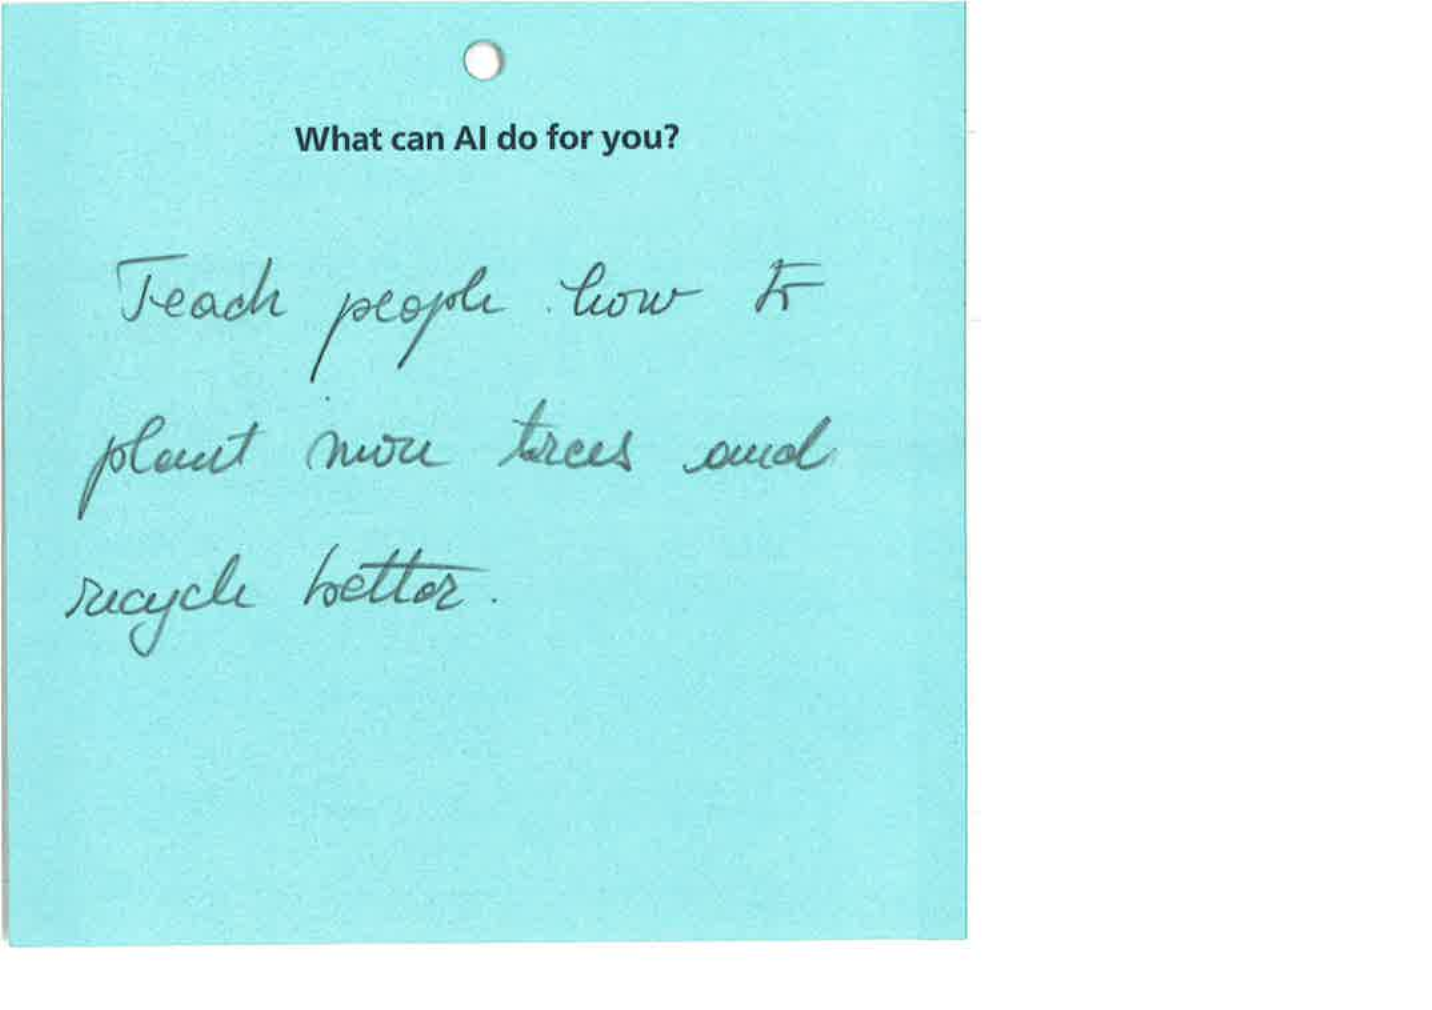 What can AI do for you?
Teach people how to
plant more trees and
recycle better.